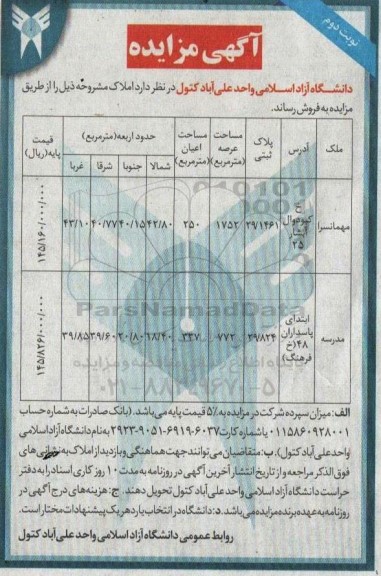 نوبت دوم
آگهی مزایده
دانشگاه آزاد اسلامی واحد علی‌آباد کتول در نظر دارد املاک مشروحه ذیل را از طریق
مزایده به فروش رساند.
ملک آدرس پلاک ثبتی مساحت عرصه (مترمربع) مساحت اعیان (مترمربع) حدود اربعه (مترمربع) قیمت پایه(ریال)
شمالا جنوبا شرقا غربا
مهمانسرا خ کبودوال ۲۵ ۲۹/۱۴۶۱ ۱۷۵۲ ۲۵۰ ۴۲/۸۰ ۴۰/۱۵ ۴۰/۷۷ ۴۳/۱۰ ۱۴۵/۱۶۰/۰۰۰/۰۰۰
مدرسه ابتدای پاسداران ۴۸(خ فرهنگ) ۲۹/۸۲۴ ۷۷۲ ۳۳۷ ۱۸/۴۰ ۲۰/۸۰ ۳۹/۶۰ ۳۹/۸۵ ۱۴۵/۸۲۶/۰۰۰/۰۰۰
ParsNamadData
الف: میزان سپرده شرکت در مزایده به ۵٪ قیمت پایه می باشد. (بانک صادرات به شماره حساب
۰۱۱۵۸۶۰۹۲۸۰۰۱ یا شماره کارت ۶۰۳۷-۶۹۱۹-۹۰۵۱-۲۹۲۳ به نام دانشگاه آزاد اسلامی
واحد علی آباد کتول). ب: متقاضیان می توانند جهت هماهنگی و بازدید از املاک به نشانی های
فوق الذکر مراجعه و از تاریخ انتشار آخرین آگهی در روزنامه به مدت ۱۰ روز کاری اسناد را به دفتر
حراست دانشگاه آزاد اسلامی واحد علی آباد کتول تحویل دهند. ج: هزینه های درج آگهی در
روزنامه به عهده برنده مزایده می باشد. د: دانشگاه در انتخاب یا رد هر یک پیشنهادات مختار است.
روابط عمومی دانشگاه آزاد اسلامی واحد علی آباد کتول